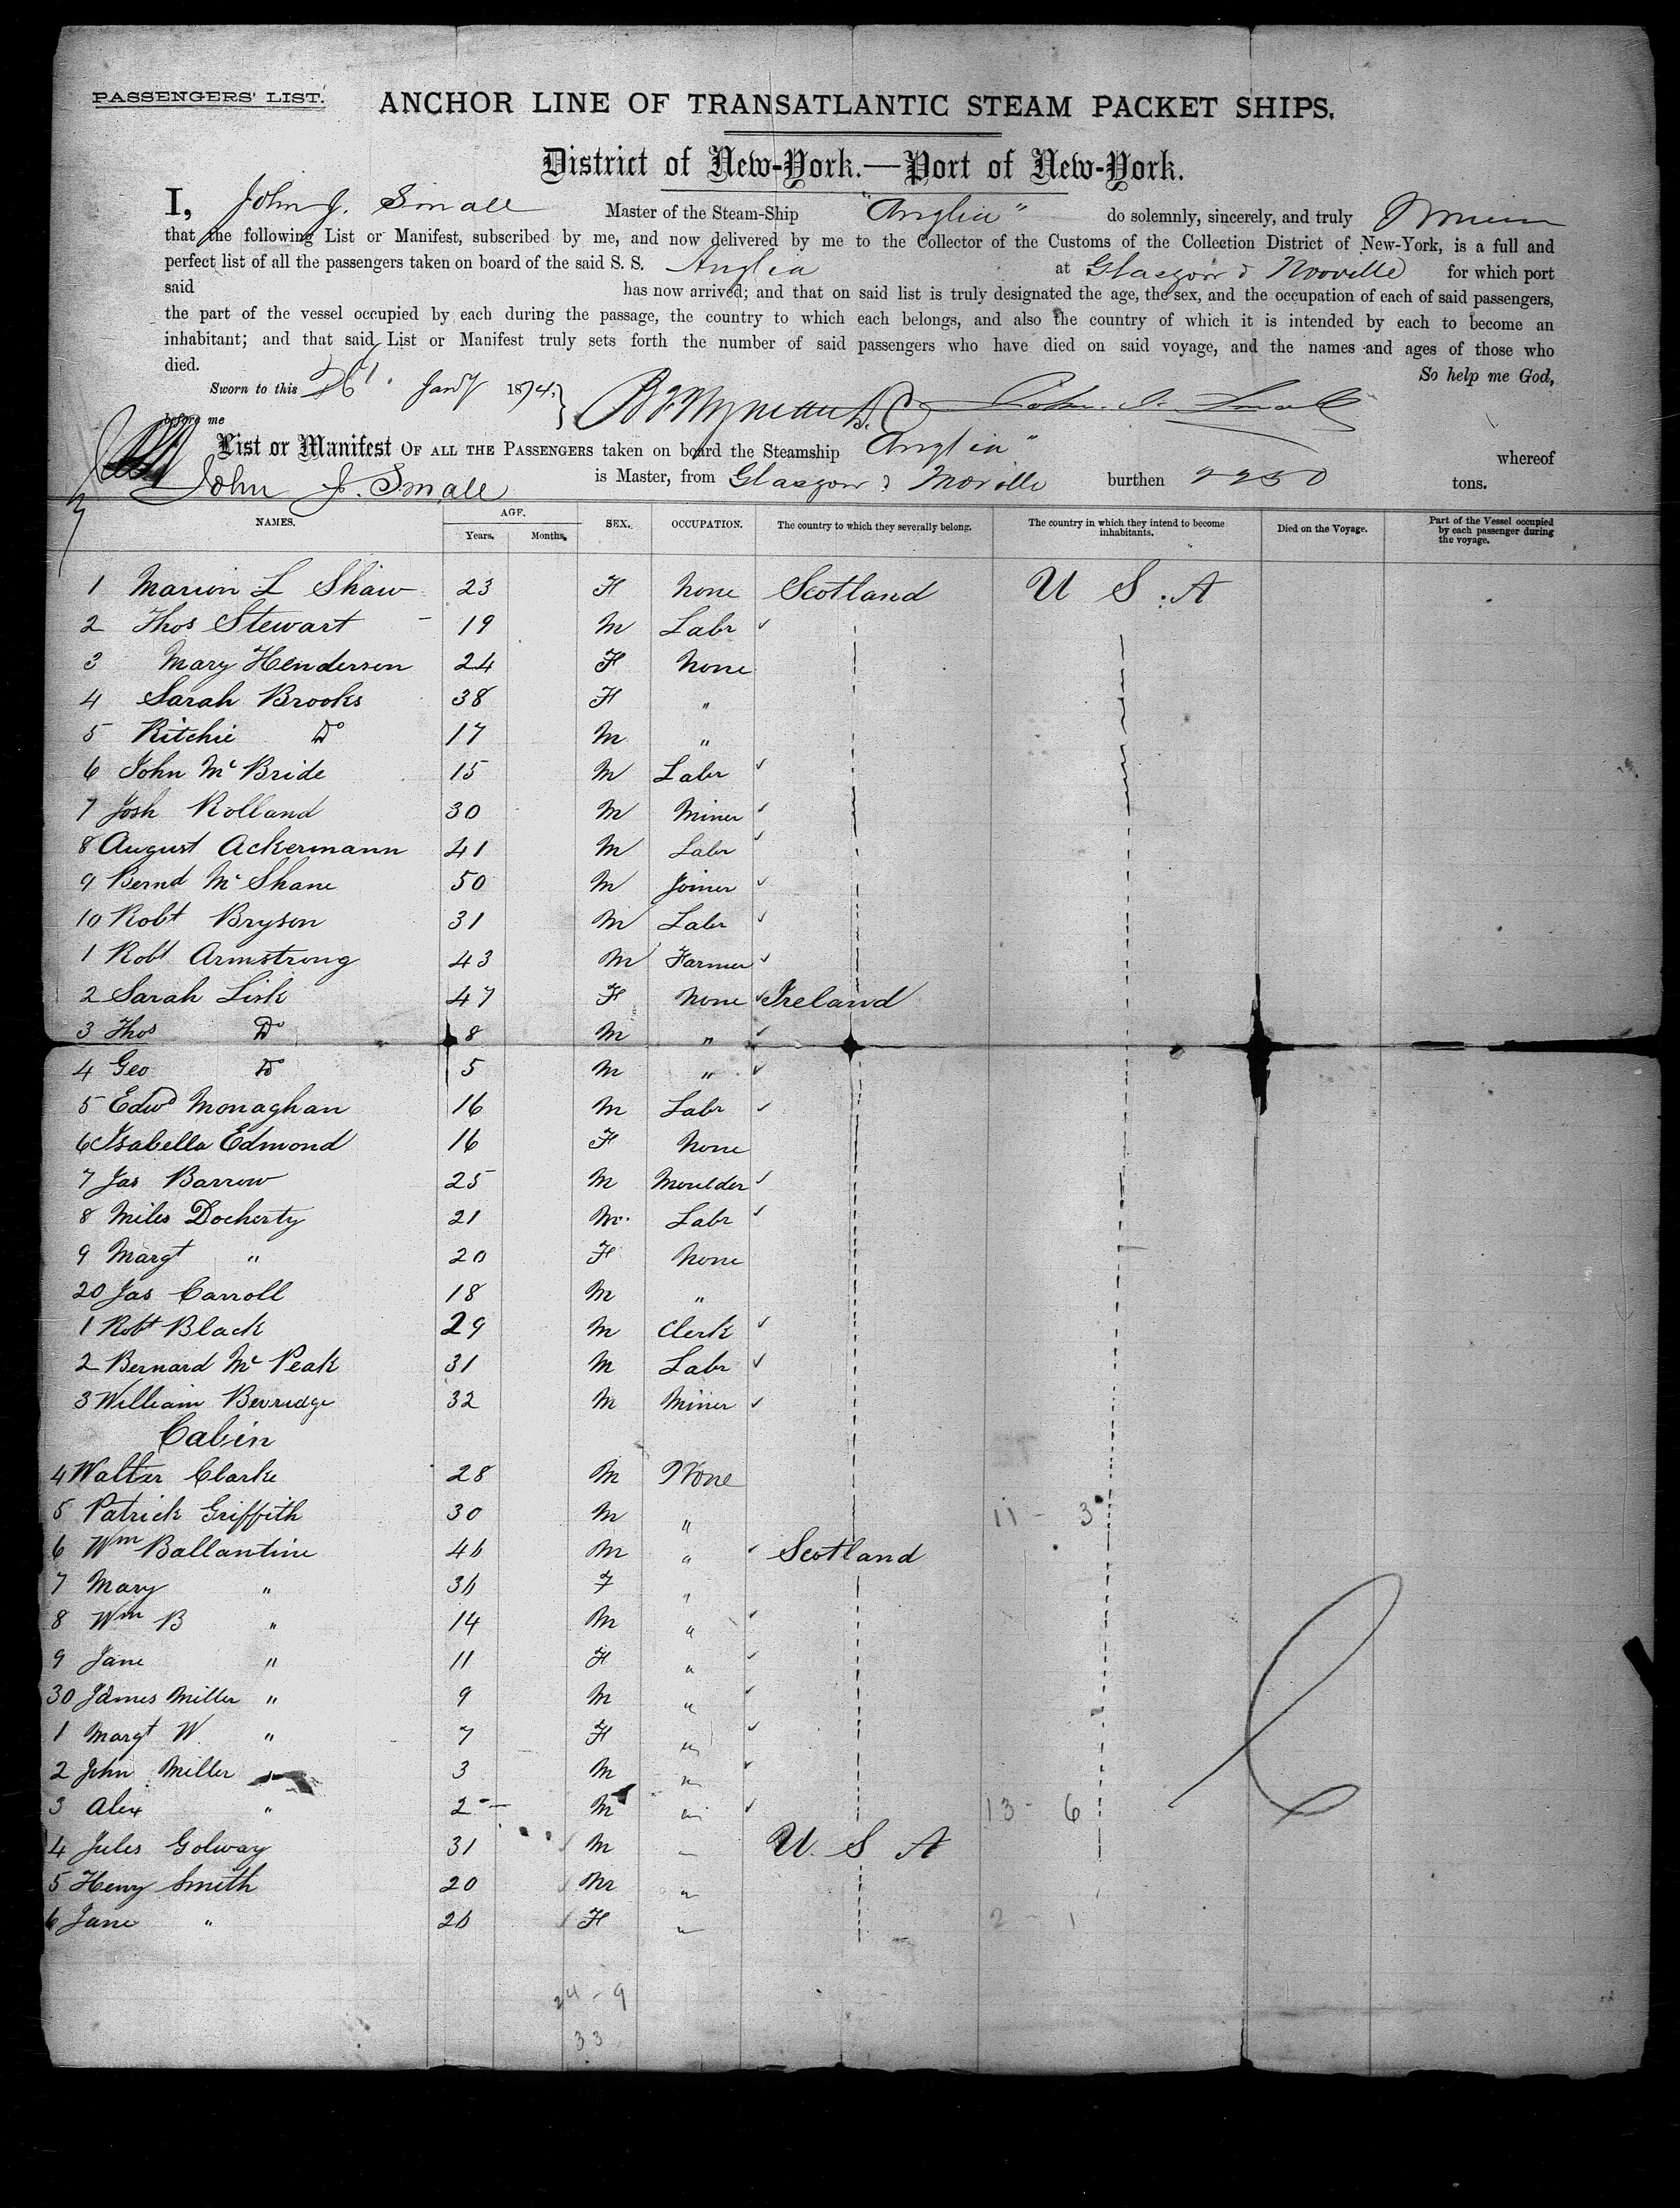 PASSENGERS' LIST.
ANCHOR LINE OF TRANSATLANTIC STEAM PACKET SHIPS.
District of New-York.—Port of New-York.
I, John J. Small Master of the Steam-Ship "Anglia" do solemnly, sincerely, and truly
that the following List or Manifest, subscribed by me, and now delivered by me to the Collector of the Customs of the Collection District of New-York, is a full and
perfect list of all the passengers taken on board of the said S. S. Anglia at Glasgow & Moville for which port
said has now arrived; and that on said list is truly designated the age, the sex, and the occupation of each of said passengers,
the part of the vessel occupied by each during the passage, the country to which each belongs, and also the country of which it is intended by each to become an
inhabitant; and that said List or Manifest truly sets forth the number of said passengers who have died on said voyage, and the names and ages of those who
died. So help me God,
Sworn to this 26 Jany 1874. John J. Small
before me
List or Manifest OF ALL THE PASSENGERS taken on board the Steamship "Anglia" whereof
John J. Small is Master, from Glasgow & Moville burthen 2250 tons.
NAMES. AGE. Years. Months. SEX. OCCUPATION. The country to which they severally belong. The country in which they intend to become inhabitants. Died on the Voyage. Part of the Vessel occupied by each passenger during the voyage.
1 Marion L Shaw 23 F None Scotland U S A
2 Thos Stewart 19 M Labr
3 Mary Henderson 24 F None
4 Sarah Brooks 38 F "
5 Ritchie Do 17 M "
6 John McBride 15 M Labr
7 Josh Rolland 30 M Miner
8 August Ackermann 41 M Labr
9 Bernd McShane 50 M Joiner
10 Robt Bryson 31 M Labr
1 Robt Armstrong 43 M Farmer
2 Sarah Lisk 47 F None Ireland
3 Thos Do 8 M "
4 Geo Do 5 M "
5 Edwd Monaghan 16 M Labr
6 Isabella Edmond 16 F None
7 Jas Barrow 25 M Moulder
8 Miles Docherty 21 M Labr
9 Margt " 20 F None
20 Jas Carroll 18 M "
1 Robt Black 29 M Clerk
2 Bernard McPeak 31 M Labr
3 William Bevridge 32 M Miner
Cabin
4 Walter Clarke 28 M None
5 Patrick Griffith 30 M " 11 - 3
6 Wm Ballantine 46 M " Scotland
7 Mary " 36 F "
8 Wm B " 14 M "
9 Jane " 11 F "
30 James Miller " 9 M "
1 Margt W. " 7 F "
2 John Miller " 3 M "
3 Alex " 2 M " 13 - 6
4 Jules Golway 31 M " U S A
5 Henry Smith 20 M "
6 Jane " 26 F " 2 - 1
24 - 9
33